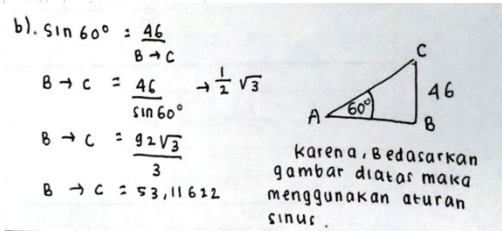 b). sin 60° = 46
B → C
B → C = 46 → 1/2 √3
sin 60°
B → C = 92√3
3
B → C = 53,11622
C
46
A 60° B
Karena, Bedasarkan
gambar diatas maka
menggunakan aturan
sinus.